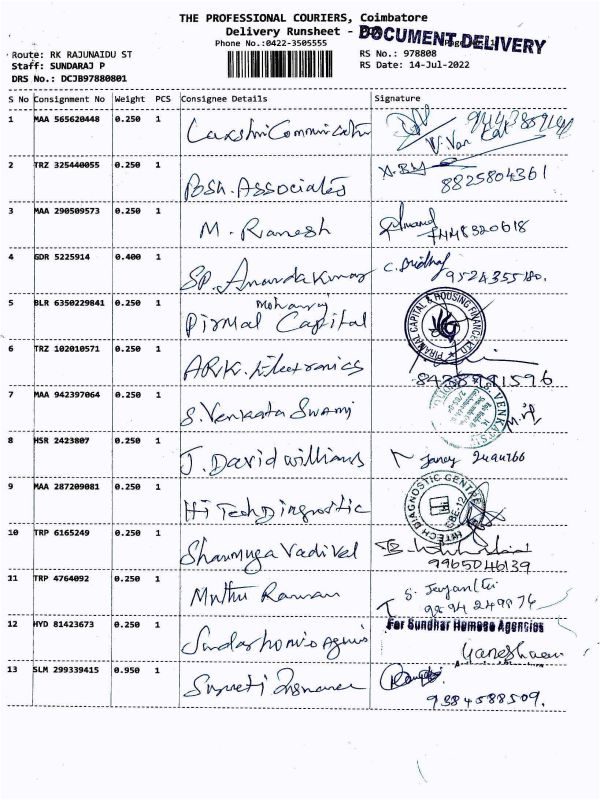 THE PROFESSIONAL COURIERS, Coimbatore
Delivery Runsheet -
DOCUMENT DELIVERY
Phone No.:0422-3505555
Route: RK RAJUNAIDU ST
RS No.: 978808
Staff: SUNDARAJ P
RS Date: 14-Jul-2022
DRS No.: DCJB97880801
S No Consignment No Weight PCS Consignee Details Signature
1 MAA 565620448 0.250 1 Laxshmi Communication
2 TRZ 325440055 0.250 1 BSH. Associates 8825804361
3 MAA 290509573 0.250 1 M. Ramesh
4 GDR 5225914 0.400 1 SP. Ananda Kumar C. Sridhar 9524355180.
5 BLR 6350229841 0.250 1 Pirmal Capital
PIRAMAL CAPITAL & HOUSING FINANCE LTD
6 TRZ 102010571 0.250 1 ARK. Electronics
7 MAA 942397064 0.250 1 S. Venkata Swami
S. VENKATS
8 HSR 2423807 0.250 1 J. David williams
9 MAA 287209081 0.250 1 Hi Tech Dignostic
HITECH DIAGNOSTIC CENTRE
CBE-12
10 TRP 6165249 0.250 1 Shanmuga Vadivel
9965046139
11 TRP 4764092 0.250 1 Muthu Raman S. Jayanthi
12 HYD 81423673 0.250 1 For Sundhar Homoeo Agencies
Ganeshan
13 SLM 299339415 0.950 1
9384588509.